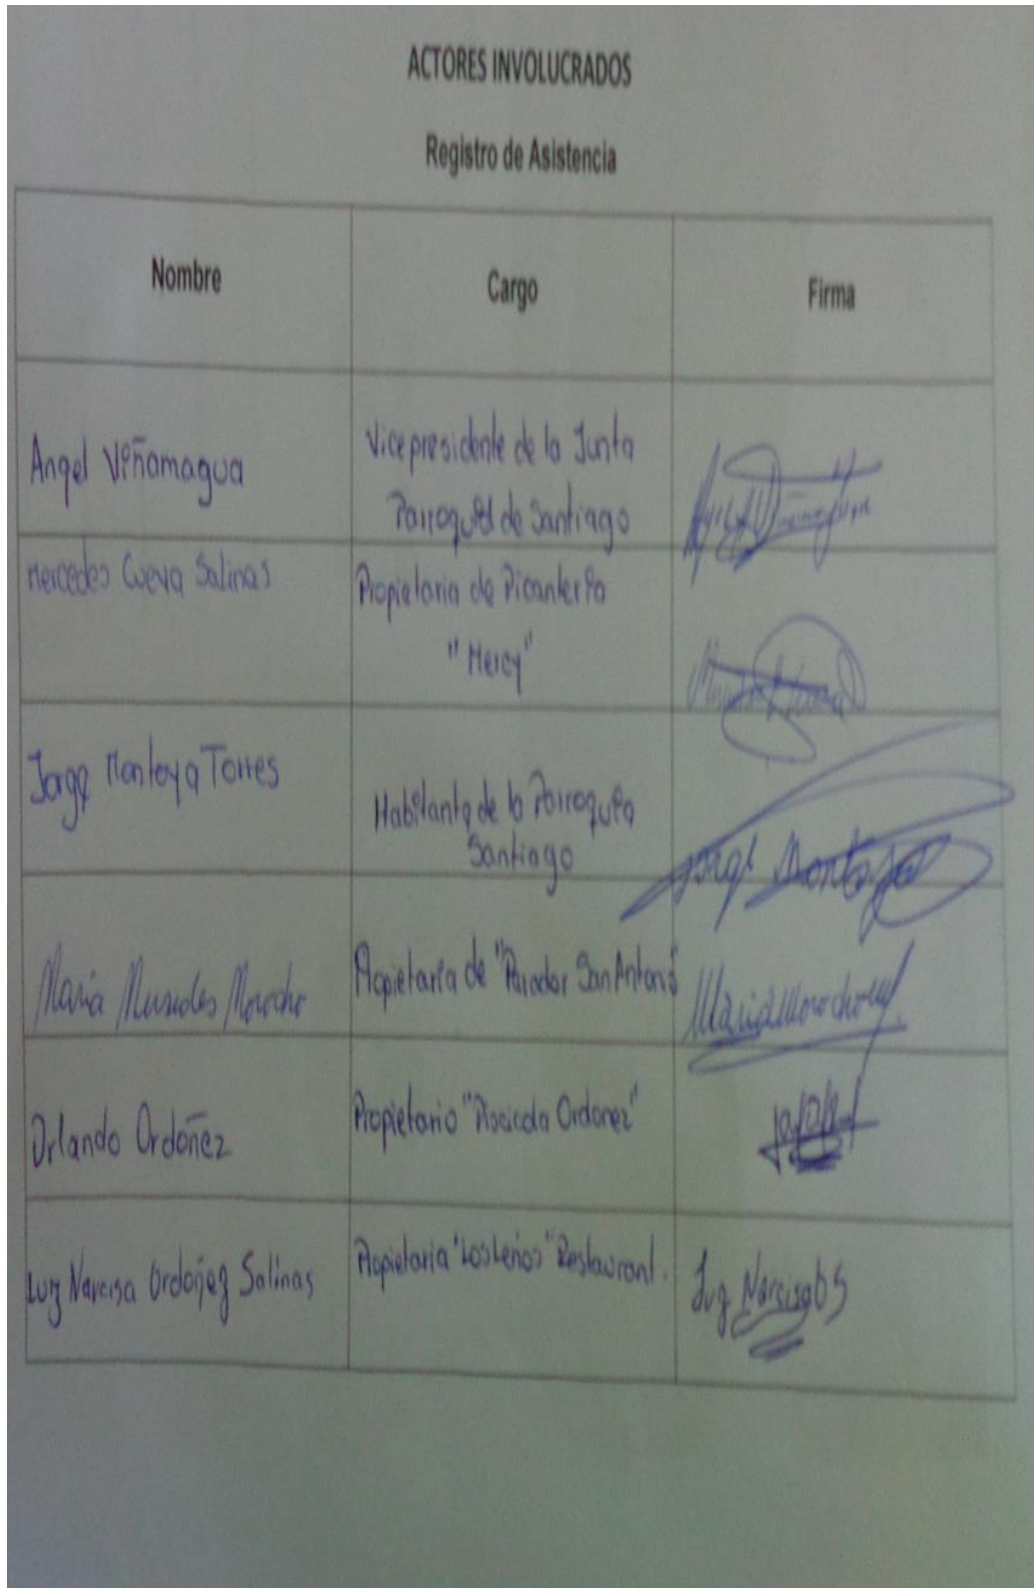 ACTORES INVOLUCRADOS
Registro de Asistencia
Nombre Cargo Firma
Angel Viñamagua
Vicepresidente de la Junta
Parroquial de Santiago
Mercedes Cueva Salinas
Propietaria de Picantería
"Mercy"
Jorge Montoya Torres
Habitante de la Parroquia
Santiago
Jorge Montoya
Maria Mercedes Morocho
Propietaria de "Parador San Antonio"
Maria Morocho
Orlando Ordoñez
Propietario "Piscicola Ordonez"
Luz Narcisa Ordoñez Salinas
Propietaria "Los Leños" Restaurant.
Luz Narcisa O S